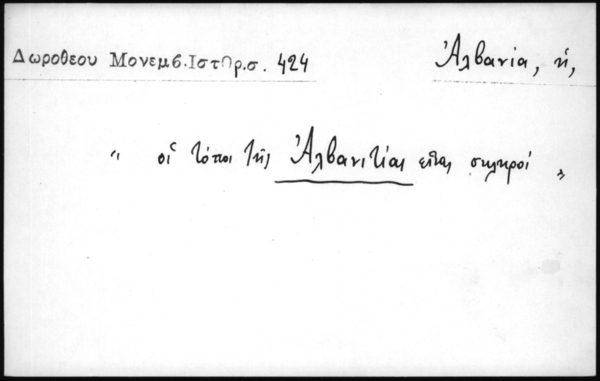 Δωροθεου Μονεμβ.Ιστορ.σ. 424
Ἀλβανία, ἡ,
" οἱ τόποι τῆς Ἀλβανιτίας εἶναι σκληροί "